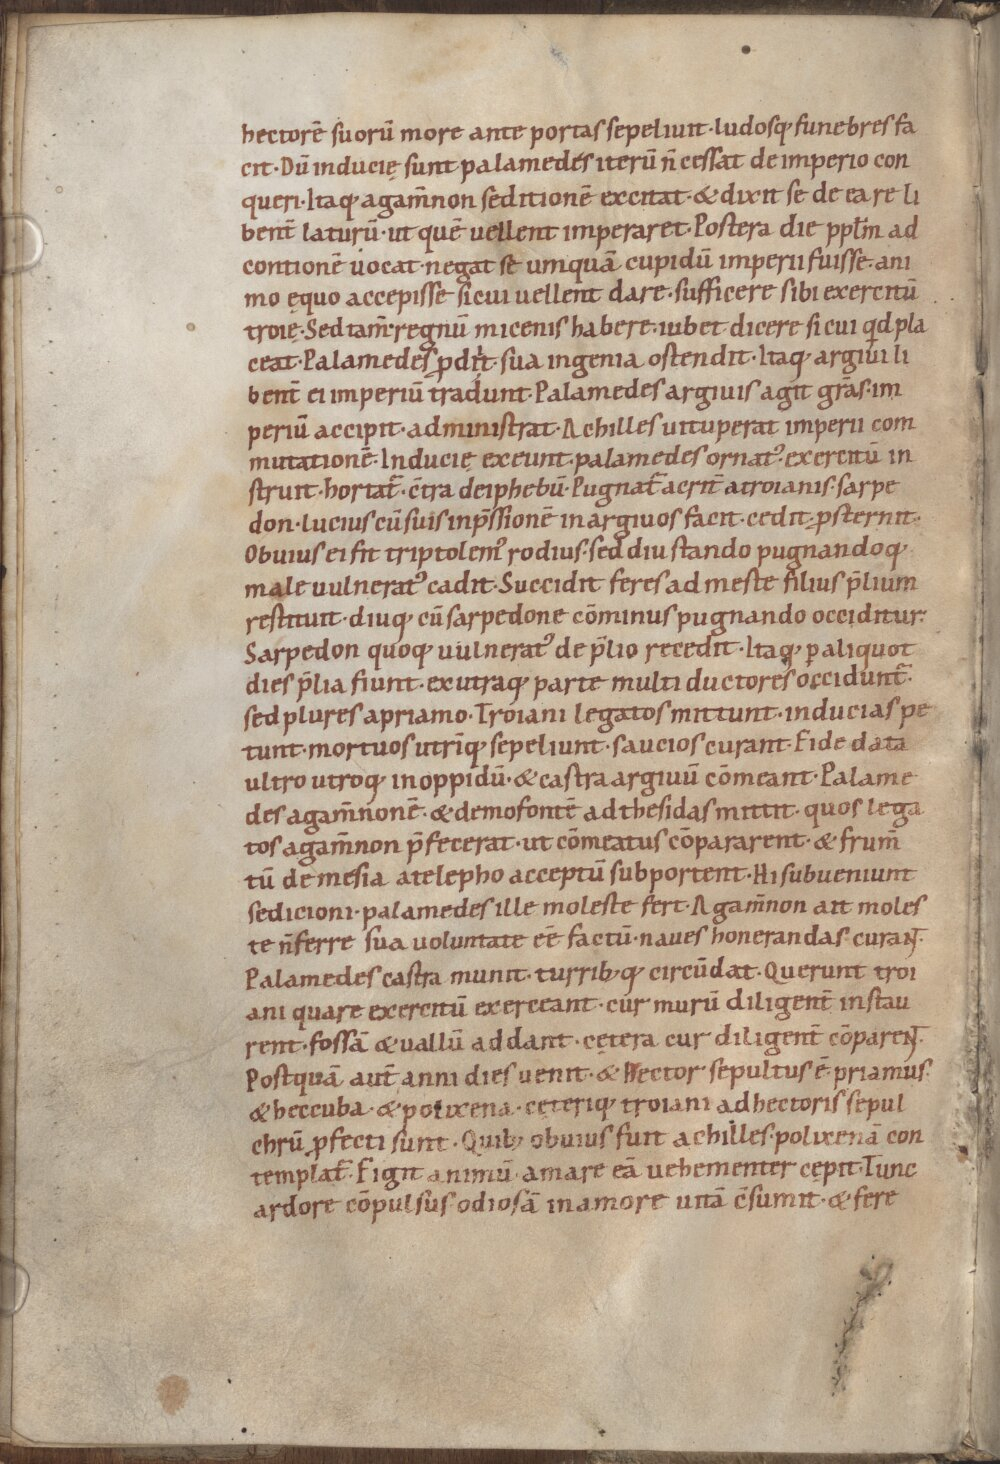 hectorē suorū more ante portas sepeliunt · ludosq; funebres fa
cit · Dū inducię sunt palamedes iterū n̄ cessat de imperio con
queri · Itaq; agam̄non seditionē excitat · & dixit se de ea re li
bent̄ laturū · ut quē uellent imperaret · Postera die ppl̄m ad
contionē uocat · negat se umquā cupidū imperii fuisse · ani
mo ęquo accepisse si cui uellent dare · sufficere sibi exercitū
troię · Sed tam̄ regnū micenis habere · iubet dicere si cui qd pla
ceat · Palamedes ꝓdiit · sua ingenia ostendit · Itaq; argiui li
bent̄ ei imperiū tradunt · Palamedes argiuis agit grās · im
periū accipit · administrat · Achilles uituperat imperii com
mutationē · Inducię exeunt · palamedes ornat᾽ exercitū in
struit · hortat̄ · c̄tra deiphebū · Pugnat̄ acrit̄ a troianis · sarpe
don · lucius cū suis inp̄ssionē in argiuos facit · cedit · ꝓsternit ·
Obuius ei fit triptolem᾽ rodius · sed diu stando pugnandoq;
male uulnerat᾽ cadit · Succidit feres admeste filius p̄lium
restituit · diuq; cū sarpedone cōminus pugnando occiditur ·
Sarpedon quoq; uulnerat᾽ de p̄lio recedit · Itaq; ꝑ aliquot
dies p̄lia fiunt · ex utraq; parte multi ductores occidunt̄ ·
sed plures a priamo · Troiani legatos mittunt · inducias pe
tunt · mortuos utriq; sepeliunt · saucios curant · Fide data
ultro utroq; in oppidū · & castra argiuū cōmeant · Palame
des agam̄nonē · & demofontē ad thesidas mittit · quos lega
tos agam̄non p̄fecerat · ut cōmeatus cōpararent · & frum̄
tū de mesia a telepho acceptū subportent · Hi subueniunt
sedicioni · palamedes ille moleste fert · Agam̄non ait moles
te n̄ ferre sua uoluntate eē factū · naues honerandas curant ·
Palamedes castra munit · turrib; q; circūdat · Querunt troi
ani quare exercitū exerceant · cur murū diligent̄ instau
rent · fossā & uallū addant · cętera cur diligent̄ cōparent ·
Postquā aut̄ anni dies uenit · & Hector sepultus ē · priamus ·
& heccuba · & polixena · ceteriq; troiani ad hectoris sepul
chrū ꝓfecti sunt · Quib; obuius fuit achilles · polixenā con
templat̄ · Figit animū · amare eā uehementer cępit · Tunc
ardore cōpulsus odiosā in amore uitā c̄sumit · & fere